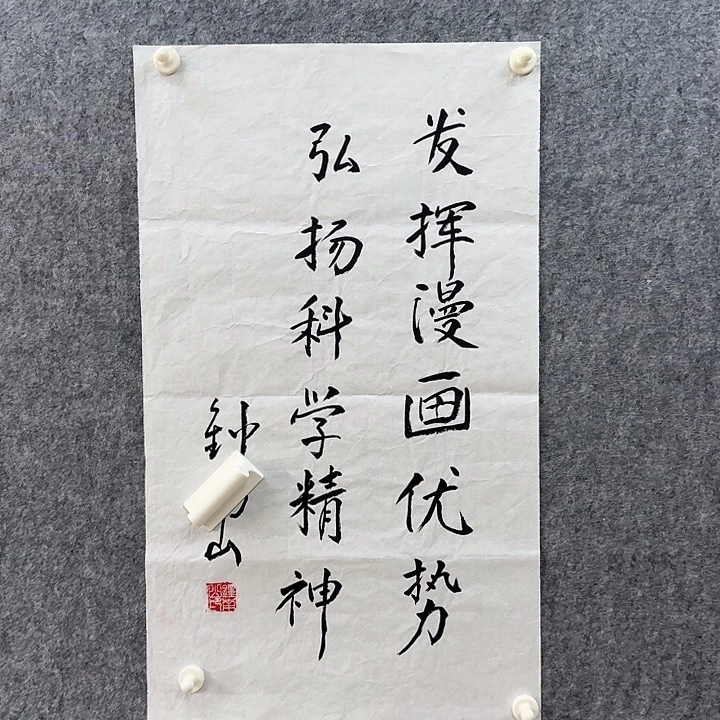 发挥漫画优势
弘扬科学精神
钟 山